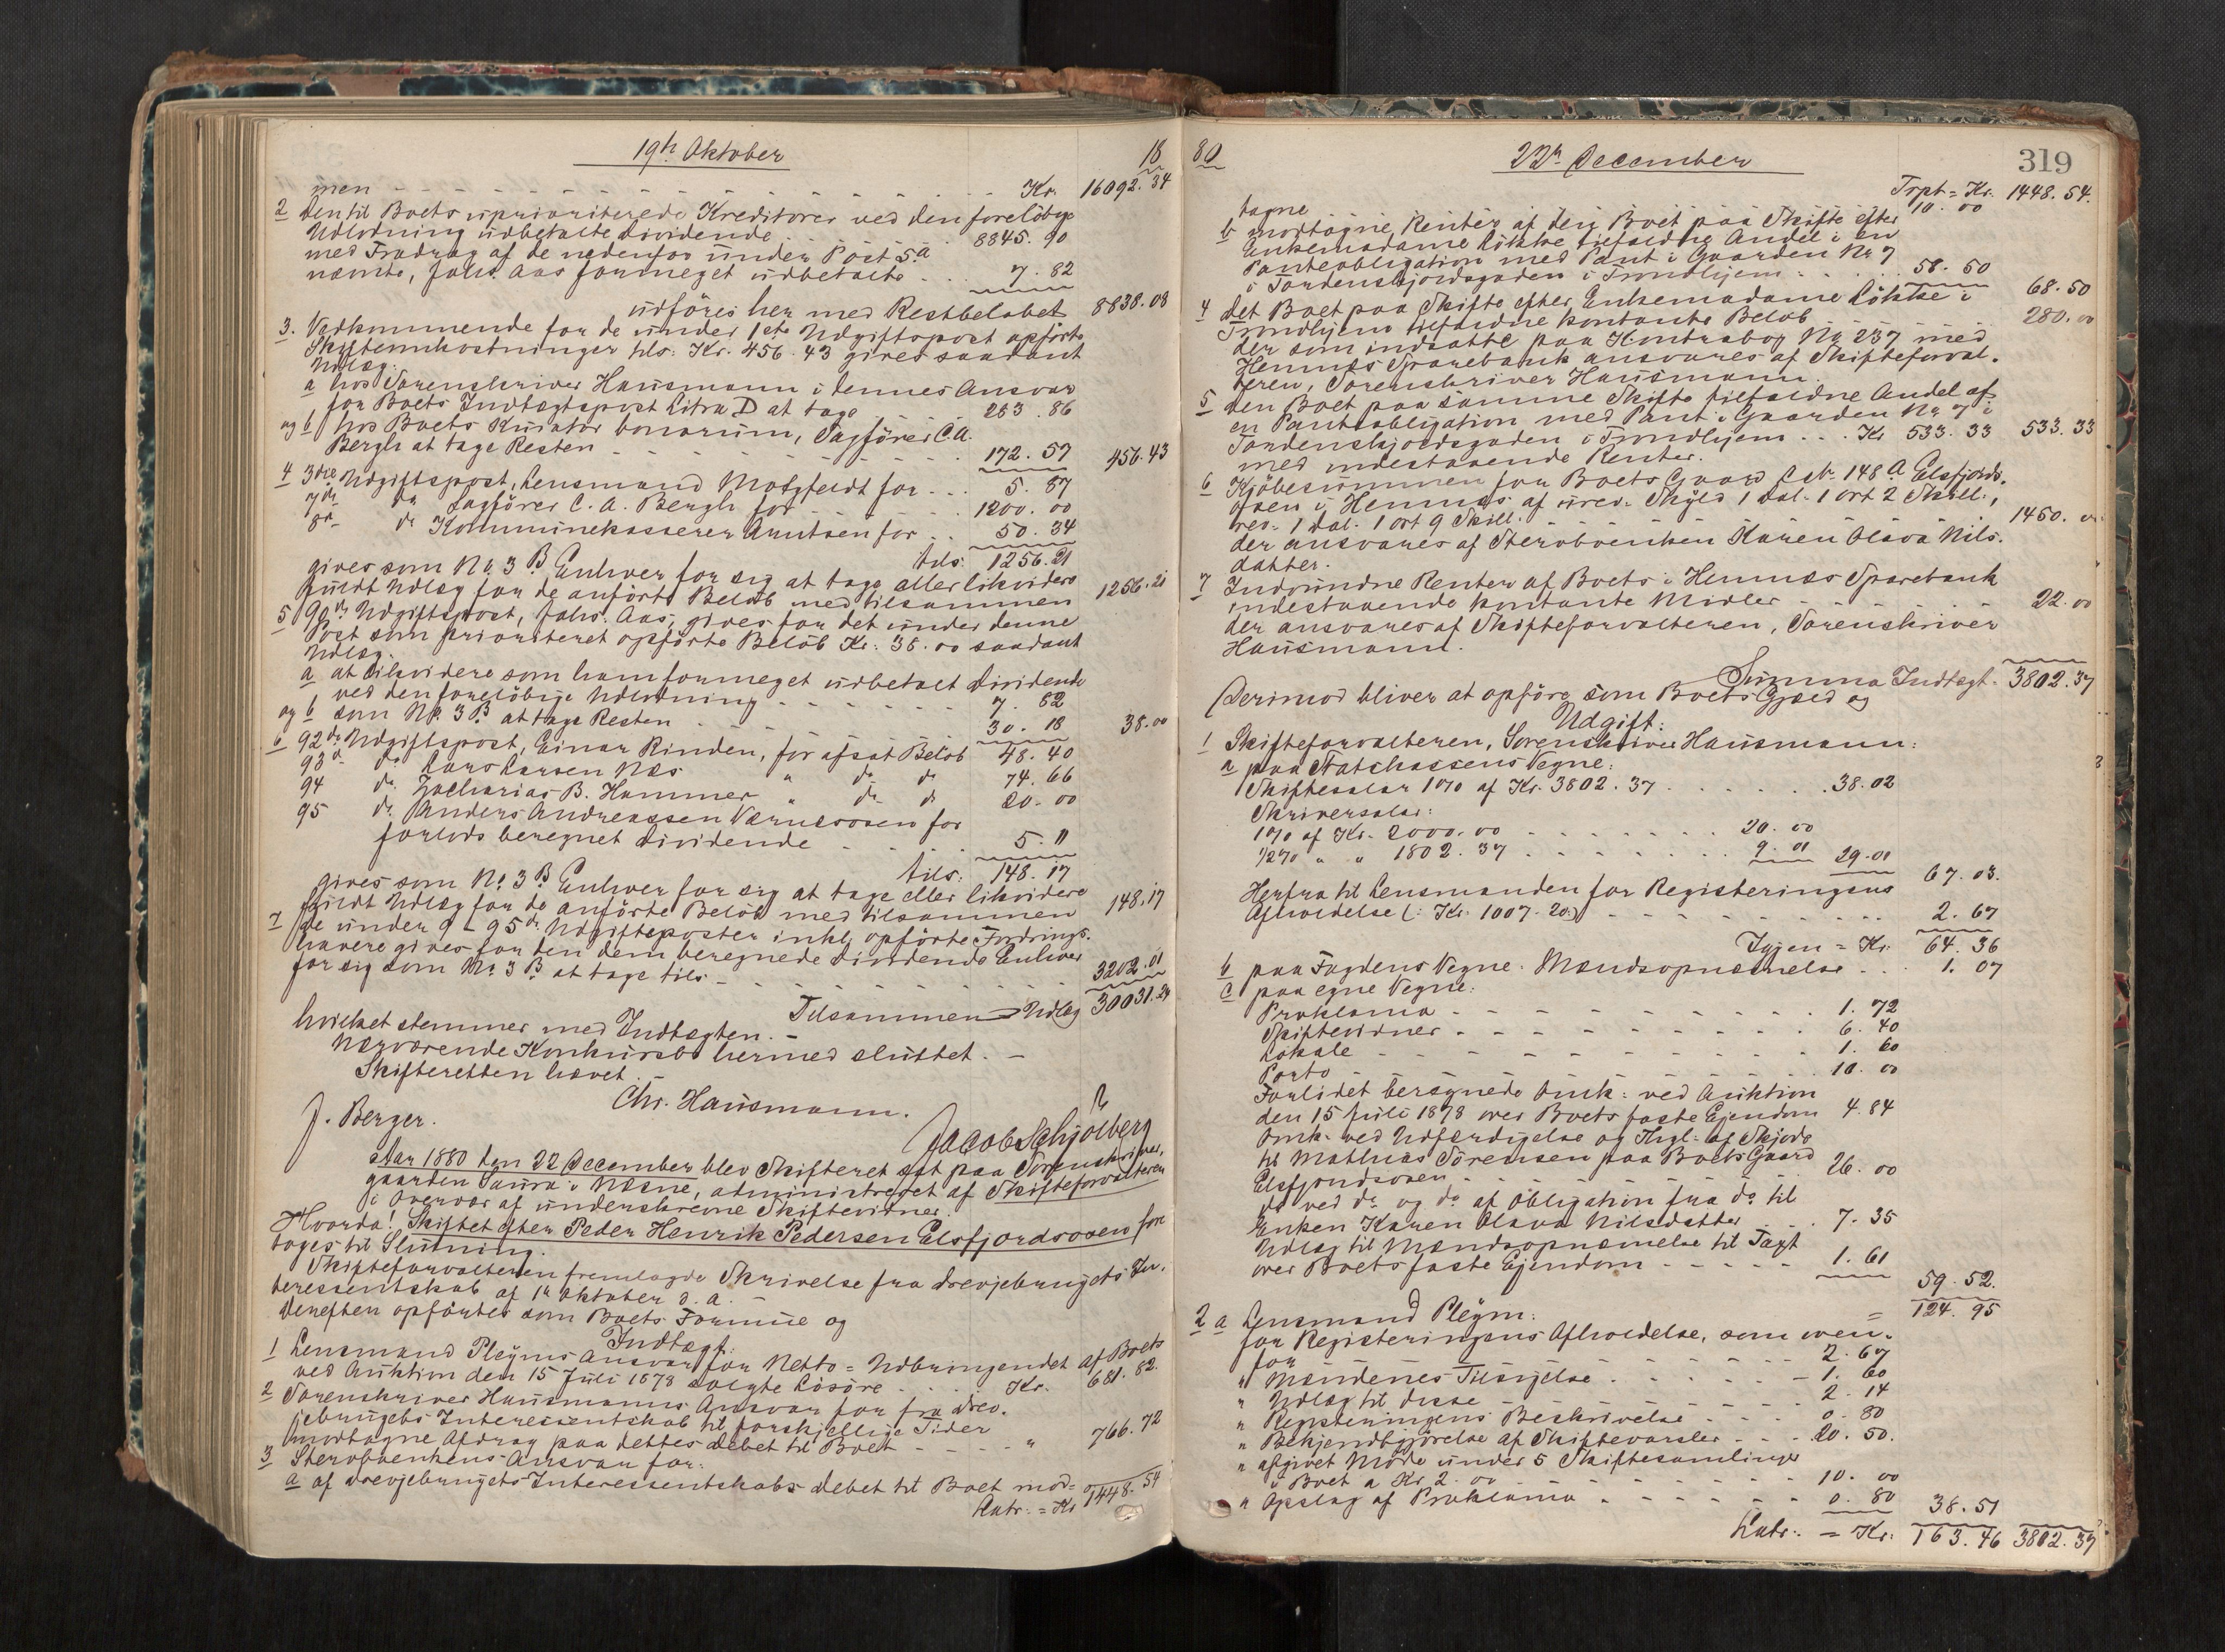 19de Oktober 18
men - - - Kr. 16092.34
2 Den til Boets uprioriterede Kreditorer ved den foreløbige
Udlodning udbetalte Dividende . . . 8845.90
med Fradrag af de nedenfor under Post 5 a
nævnte, Johs. Aas formeget udbetalte . . 7.82
udføres her med Restbeløbet 8838.08
3. Vedkommende for de under 1ste Udgiftspost opførte
Skifteomkostninger tils: Kr. 456.43 gives saadant
Udlæg:
a hos Sorenskriver Hausmann i dennes Ansvar
for Boets Indtægtspost Litra D at tage . . . 283.86
og b hos Boets Kurator bonorum, Sagfører C. A.
Bergh at tage Resten - - - 172.57 456.43
4 3die Udgiftspost, Lensmand Motzfeldt for . . . 5.87
7de do Sagfører C. A. Bergh for . . . 1200.00
8de do Kommunekasserer Arntsen for . . 50.34
tils: 1256.21
gives som No 3 B. Enhver for sig at tage eller likvidere
fuldt Udlæg for de anførte Beløb med tilsammen 1256.21
5 90de Udgiftspost, Johs. Aas, gives for det under denne
Post som prioriteret opførte Beløb Kr: 38.00 saadant
Udlæg.
a at likvidere som ham formeget udbetalt Dividende
ved den foreløbige Udlodning - - - 7.82
og b som No. 3 B at tage Resten - - - 30.18 38.00
6 92de Udgiftspost, Einar Rinden, for afsat Beløb 48.40
93de do Lars Larsen Næs " do do 74.66
94 do Zacharias B. Hammer " do do 20.00
95 do Anders Andreassen Værnesosen for
forlods beregnet Dividende - - - 5.11
tils: 148.17
gives som No. 3 B. Enhver for sig at tage eller likvidere
fuldt Udlæg for de anførte Beløb med tilsammen 148.17
7 De under 9 - 95de Udgiftsposter inkl. opførte Fordrings-
havere gives for den dem beregnede Dividende Enhver
for sig som No 3 B at tage tils - - - 3202.01
Tilsammen Udlæg 30031.24
hvilket stemmer med Indtægten. -
Nærværende Konkursbo hermed sluttet. -
Skifteretten hævet.
Chr. Hausmann.
J. Berger.
Jacob Schjølberg
Aar 1880 den 22 December blev Skifteret sat paa Sorenskriver-
gaarden Saura i Næsne, administreret af Skifteforvalteren
i Overvær af underskrevne Skiftevidner.
Hvorda! Skiftet efter Peder Henrik Pedersen Elsfjordsosen fore
toges til Slutning.
Skifteforvalteren fremlagde Skrivelse fra Drevjebrugets In-
teressentskab af 1ste Oktober d. a. -
Derefter opførtes som Boets Formue og
Indtægt:
1 Lensmand Pleyms Ansvar for Netto = Udbringendet af Boets
ved Auktion den 15 Juli 1878 solgte Løsøre . . . Kr. 681.82.
2 Sorenskriver Hausmanns Ansvar for fra Drev-
jebrugets Interessentskab til forskjellige Tider
modtagne Afdrag paa dettes Debet til Boet - - - " 766.72
3 Stervboenkens Ansvar for:
a af Drevjebrugets Interessentskabs Debet til Boet mod-
Latr: = Kr 1448.54
80 22de December 319
Trpt = Kr. 1448.54.
tagne 10.00
b modtagne Renter af den Boet paa Skifte efter
Enkemadame Løkke tilfaldne Andel i en
Panteobligation med Pant i Gaarden No 7
i Tordenskjoldsgaden i Trondhjem . . . 58.50 68.50
4 Det Boet paa Skifte efter Enkemadame Løkke i
Trondhjem tilfaldne kontante Beløb - - - 280.00
der som indsatte paa Kontrabog No 237 med
Hemnæs Sparebank ansvares af Skifteforval-
teren, Sorenskriver Hausmann.
5 Den Boet paa samme Skifte tilfaldne Andel af
en Panteobligation med Pant i Gaarden No 7 i
Tordenskjoldsgaden i Trondhjem . . . Kr 533.33 533.33
med indestaaende Renter.
6 Kjøbesummen for Boets Gaard L. No. 148 a Elsfjords-
osen i Hemnæs af urev. Skyld 1 Dal. 1 ort 2 Skill.,
rev. 1 Dal. 1 ort 9 Skill. - - - 1450.00
der ansvares af Stervboenken Karen Olava Nils-
datter.
7 Indvundne Renter af Boets i Hemnæs Sparebank
indestaaende kontante Midler - - - 22.00
der ansvares af Skifteforvalteren, Sorenskriver
Hausmann.
Summa Indtægt. 3802.37
Derimod bliver at opføre som Boets Gjæld og
Udgift:
1 Skifteforvalteren, Sorenskriver Hausmann:
a paa Statskassens Vegne:
Skiftesalær 1% af Kr. 3802.37 . . . 38.02
Skriversalær:
1% af Kr. 2000.00 - - - 20.00
1/2% " " 1802.37 - - - 9.01 29.01
67.03.
Herfra til Lensmanden for Registeringens
Afholdelse (: Kr. 1007.20:) - - - 2.67
Igjen = Kr. 64.36
b paa Fogdens Vegne: Mændsopnævnelse . . . 1.07
c paa egne Vegne:
Proklama - - - 1.72
Skiftevidner - - - 6.40
Lokale - - - 1.60
Porto - - - 10.00
Forlidet beregnede Omk: ved Auktion
den 15 Juli 1878 over Boets faste Ejendom 4.84
Omk: ved Udfærdigelse og Thgl: af Skjøde
til Mathias Sørensen paa Boets Gaard
Elsfjordsosen - - - 26.00
do ved do og do af Obligation fra do til
Enken Karen Olava Nilsdatter . . . 7.35
Udlæg til Mændsopnævnelse til Taxt
over Boets faste Ejendom - - - 1.61
59.52.
= 124.95
2 a Lensmand Pleym:
for Registeringens Afholdelse, som oven-
for - - - 2.67
" Mændenes Tilsigelse - - - 1.60
" Udlæg til disse - - - 2.14
" Registeringens Beskrivelse - - - 0.80
" Bekjendtgjørelse af Skiftevarsler - - - 20.50.
" afgivet Møde under 5 Skiftesamlinger
i Boet a Kr. 2.00 - - - 10.00
" Opslag af Proklama - - - 0.80 38.51
Latr: = Kr: 163.46 3802.37